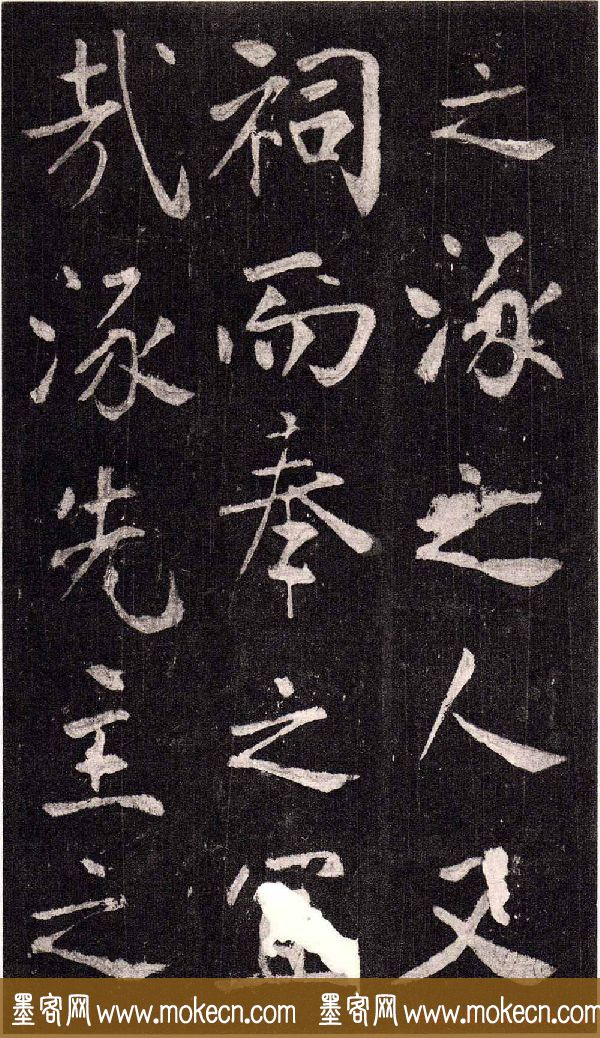 之涿之人又
祠而奉之宜
哉涿先主之
墨客网 www.mokecn.com 墨客网 www.mokecn.com